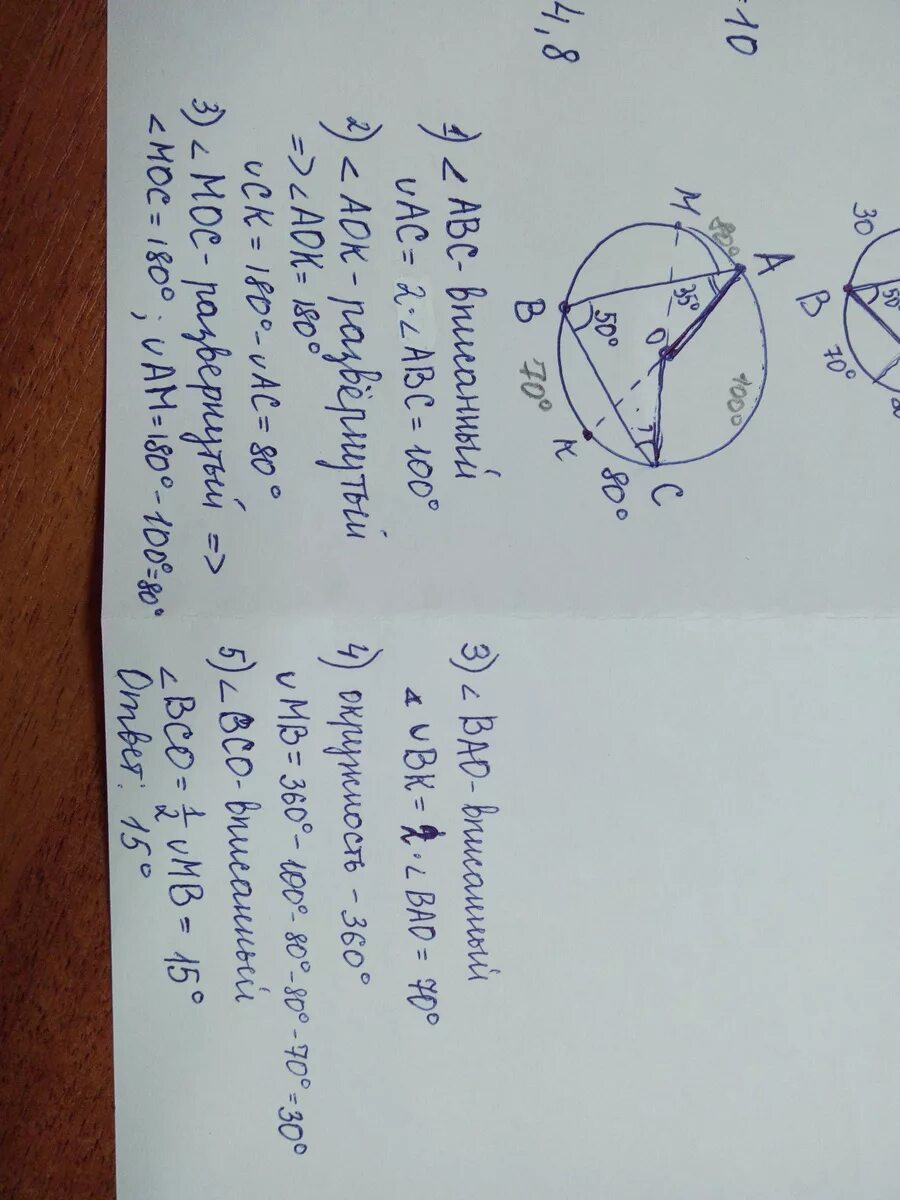 =10
4,8
30
B
50°
70°
A
M
80°
35°
O
100°
B
50°
?
70°
K
80°
C
1) ∠ABC - вписанный
∪AC = 2·∠ABC = 100°
2) ∠AOK - развёрнутый
=> ∠AOK = 180°
∪CK = 180° - ∪AC = 80°
3) ∠MOC - развернутый =>
∠MOC = 180°; ∪AM = 180° - 100° = 80°
3) ∠BAO - вписанный
∪BK = 2·∠BAO = 70°
4) окружность - 360°
∪MB = 360° - 100° - 80° - 80° - 70° = 30°
5) ∠BCO - вписанный
∠BCO = 1/2 ∪MB = 15°
Ответ: 15°